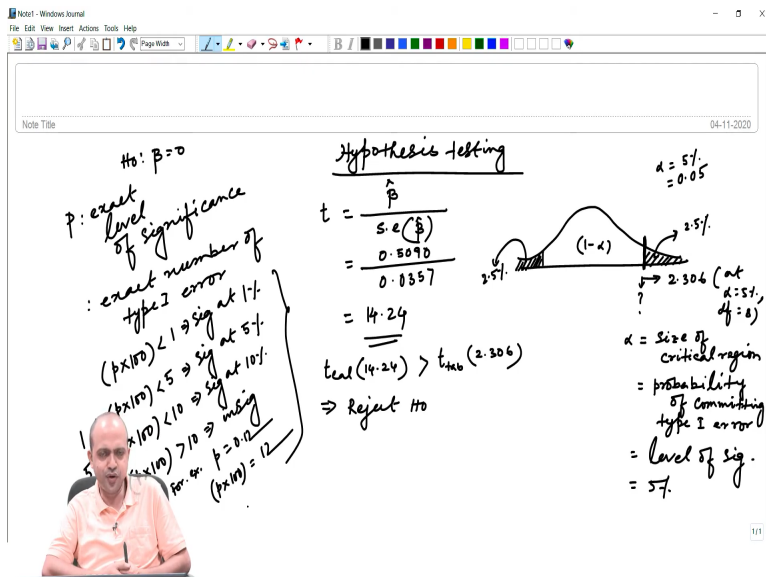 Note1 - Windows Journal
File Edit View Insert Actions Tools Help
Page Width
B I
Note Title
04-11-2020
H0: β=0
p: exact
level
of significance
: exact number of
type I error
(p×100) < 1 ⇒ sig at 1%
(p×100) < 5 ⇒ sig at 5%
×100) < 10 ⇒ sig at 10%
×100) > 10 ⇒ insig
For. ex. p = 0.12
(p×100) = 12
Hypothesis testing
t = β̂ / s.e(β̂)
= 0.5090 / 0.0357
= 14.24
tcal (14.24) > ttab (2.306)
⇒ Reject H0
α = 5%
= 0.05
2.5%
(1-α)
2.5%
2.306 (at
α=5%,
df=8)
?
α = size of
critical region
= probability
of committing
type I error
= level of sig.
= 5%
1/1